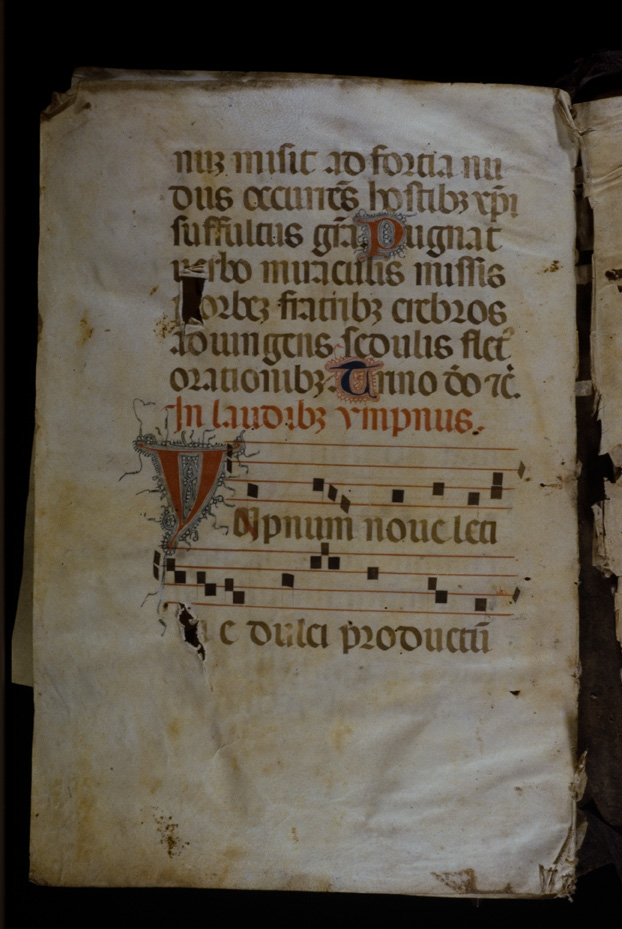 niz misit ad fortia nu
dus occurrēs hostibz xp̄i
suffultus gr̄a. Pugnat
verbo miraculis missis
orbez fratribz crebros
adiungens sedulis flet
orationibz. Trino d̄o ⁊c̄.
In laudibz ympnus.
Ympnum noue leti
e dulci productū